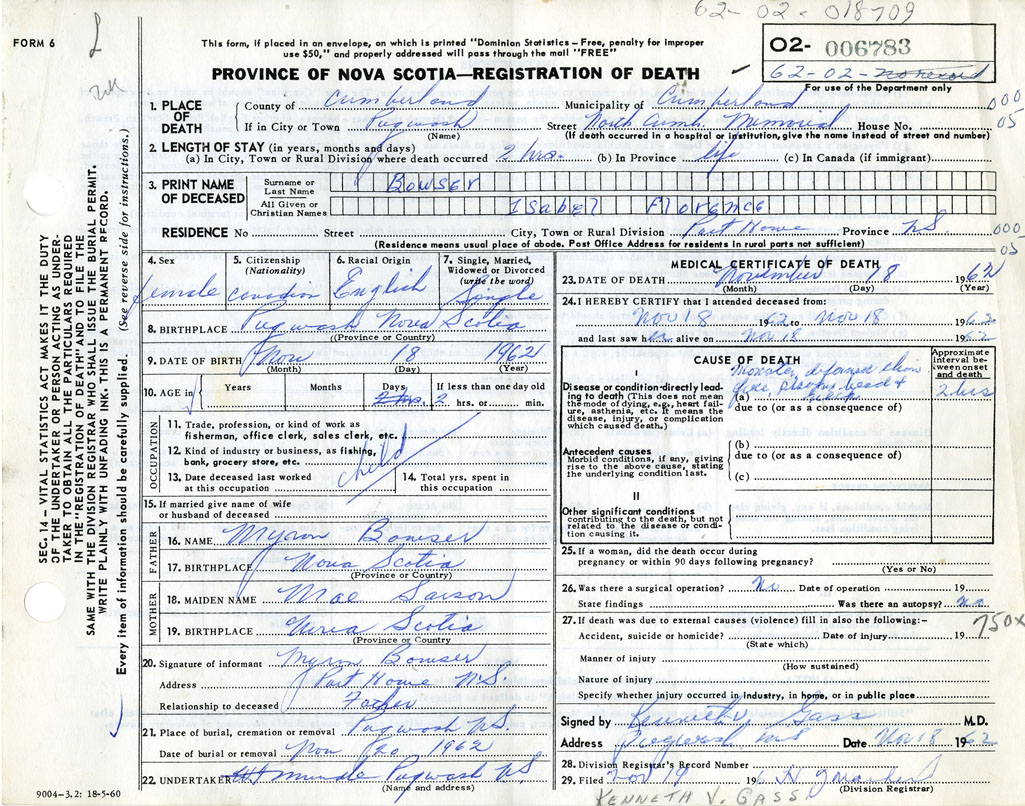 62-02-018709
FORM 6
This form, if placed in an envelope, on which is printed "Dominion Statistics – Free, penalty for improper
use $50," and properly addressed will pass through the mail "FREE"
02- 006783
62-02-no record
For use of the Department only
PROVINCE OF NOVA SCOTIA—REGISTRATION OF DEATH
1. PLACE OF DEATH
County of Cumberland Municipality of Cumberland
000
05
If in City or Town Pugwash Street North Cumb. Memorial House No.
(Name) (If death occurred in a hospital or institution, give the name instead of street and number)
2. LENGTH OF STAY (in years, months and days)
(a) In City, Town or Rural Division where death occurred 2 hrs. (b) In Province life (c) In Canada (if immigrant)
3. PRINT NAME OF DECEASED
Surname or Last Name BOWSER
All Given or Christian Names Isabel Florence
RESIDENCE No Street City, Town or Rural Division Port Howe Province NS
000
05
(Residence means usual place of abode. Post Office Address for residents in rural parts not sufficient)
4. Sex female
5. Citizenship (Nationality) Canadian
6. Racial Origin English
7. Single, Married, Widowed or Divorced (write the word) Single
8. BIRTHPLACE Pugwash Nova Scotia
(Province or Country)
9. DATE OF BIRTH Nov 18 1962
(Month) (Day) (Year)
10. AGE in Years Months Days If less than one day old
2 hrs. 2 hrs. or min.
OCCUPATION
11. Trade, profession, or kind of work as
fisherman, office clerk, sales clerk, etc.
12. Kind of industry or business, as fishing,
bank, grocery store, etc.
child
13. Date deceased last worked
at this occupation
14. Total yrs. spent in
this occupation
15. If married give name of wife
or husband of deceased
FATHER
16. NAME Myron Bowser
17. BIRTHPLACE Nova Scotia
(Province or Country)
MOTHER
18. MAIDEN NAME Mae
19. BIRTHPLACE Nova Scotia
(Province or Country
20. Signature of informant Myron Bowser
Address Port Howe N.S.
Relationship to deceased Father
21. Place of burial, cremation or removal Pugwash NS.
Date of burial or removal Nov 20 1962
22. UNDERTAKER Pugwash NS
(Name and address)
9004-3.2: 18-5-60
MEDICAL CERTIFICATE OF DEATH
23. DATE OF DEATH November 18 1962
(Month) (Day) (Year)
24. I HEREBY CERTIFY that I attended deceased from:
Nov 18 1962 to Nov 18 1962
and last saw her alive on Nov 18 1962
CAUSE OF DEATH
Approximate interval between onset and death
I
Disease or condition directly leading
to death (This does not mean
the mode of dying, e.g., heart failure,
asthenia, etc. It means the
disease, injury, or complication
which caused death.)
Monster, deformed
(a) 2 hrs
due to (or as a consequence of)
Antecedent causes
Morbid conditions, if any, giving
rise to the above cause, stating
the underlying condition last.
(b)
due to (or as a consequence of)
(c)
II
Other significant conditions
contributing to the death, but not
related to the disease or condition
causing it.
25. If a woman, did the death occur during
pregnancy or within 90 days following pregnancy?
(Yes or No)
26. Was there a surgical operation? No Date of operation 19
State findings Was there an autopsy? No
27. If death was due to external causes (violence) fill in also the following:-
Accident, suicide or homicide? Date of injury 19
750X
(State which)
Manner of injury
(How sustained)
Nature of injury
Specify whether injury occurred in industry, in home, or in public place
Signed by Kenneth V. Gass M.D.
Address NS Date Nov 18 1962
28. Division Registrar's Record Number
29. Filed Nov 19 196
(Division Registrar)
KENNETH V. GASS
SEC. 14 – VITAL STATISTICS ACT MAKES IT THE DUTY
OF THE UNDERTAKER OR PERSON ACTING AS UNDERTAKER
TO OBTAIN ALL THE PARTICULARS REQUIRED
IN THE "REGISTRATION OF DEATH" AND TO FILE THE
SAME WITH THE DIVISION REGISTRAR WHO SHALL ISSUE THE BURIAL PERMIT.
WRITE PLAINLY WITH UNFADING INK. THIS IS A PERMANENT RECORD.
Every item of information should be carefully supplied. (See reverse side for instructions.)